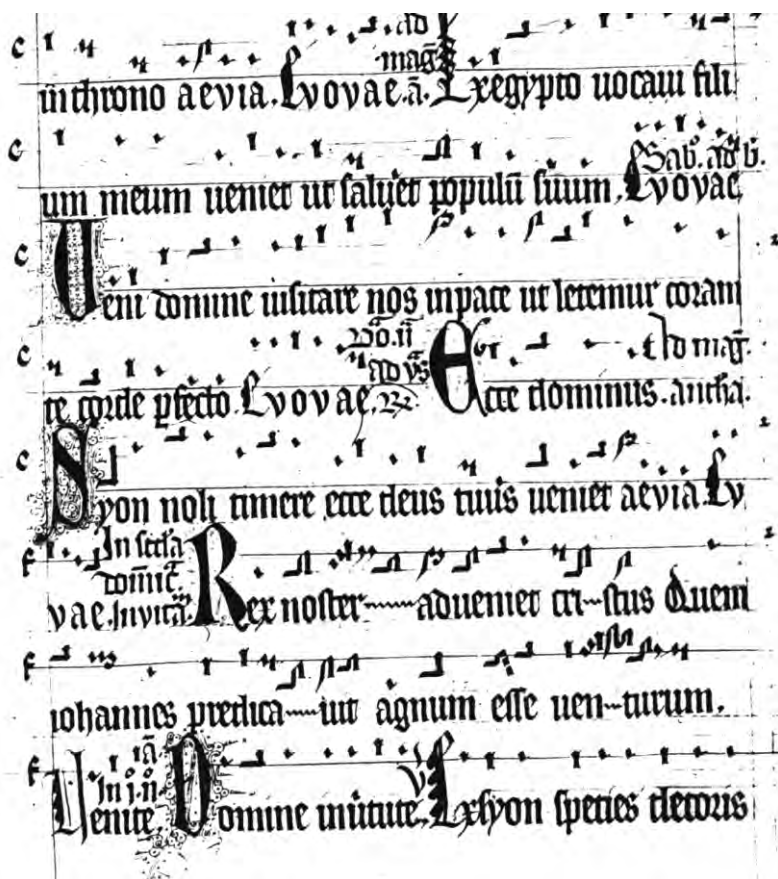 ad
mag̃
in throno aevia. Evovae. ã. Ex egypto uocaui fili
Sab̃o. ad b̃.
um meum ueniet ut saluet populũ suum. Evovae
Veni domine uisitare nos in pace ut letemur coram
D̃o. ii
ad ṽs
te corde pfecto. Evovae. Ecce dominus. antha. Ad mag̃.
Syon noli timere ecce deus tuus ueniet aevia. Ev
In sccl̃a
domic̃
vae. Invitã. Rex noster adueniet cristus Quem
iohannes predicauit agnum esse uenturum.
iã
In i. ñ
Venite. Domine in uirtute. V Ex syon species decoris